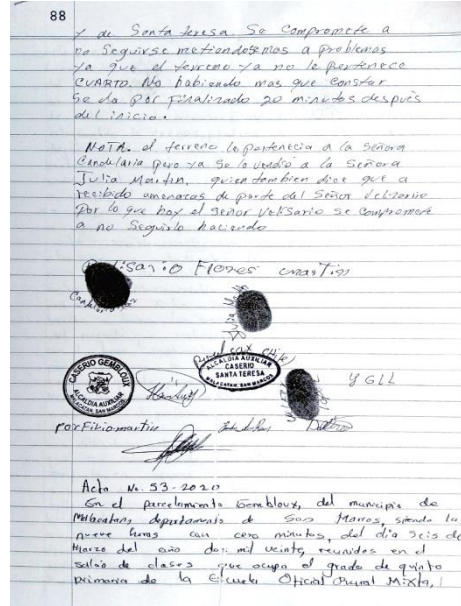 88
y de Santa teresa. Se Compromete a
no Seguirse metiendose mas a problemas
ya que el terreno ya no le pertenece
CUARTO. No habiendo mas que constar
Se da por finalizado 20 minutos después
del inicio.
NOTA. el terreno le pertenecia a la Señora
Candelaria pero ya Se lo vendió a la Señora
Julia Martin, quien tambien dice que a
recibido amenazas de parte del Señor Velisario
Por lo que hoy el Señor Velisario se compromete
a no Seguirlo haciendo
Flores martin
CASERIO GEMBLOUX
ALCALDIA AUXILIAR
MALACATAN, SAN MARCOS
ALCALDIA AUXILIAR
CASERIO
SANTA TERESA
MALACATAN, SAN MARCOS
y GLL
Por Fibio martin
Acta No. 53-2020
En el parcelamiento Gembloux, del municipio de
Malacatan, departamento de San Marcos, siendo la
nueve horas con cero minutos, del día seis de
Marzo del año dos mil veinte, reunidos en el
salón de clases que ocupa el grado de quinto
primaria de la Escuela Oficial Rural Mixta,